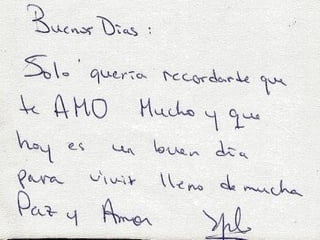 Buenos Días:
Solo quería recordarte que
te AMO Mucho y que
hoy es un buen día
para vivir lleno de mucha
Paz y Amor